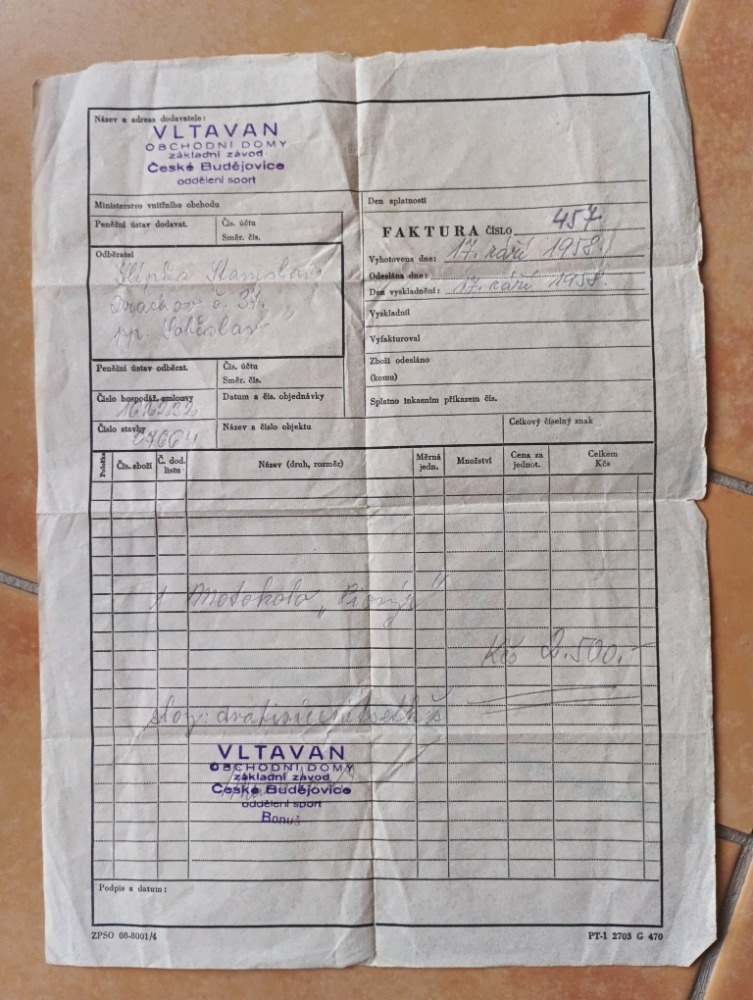 Název a adresa dodavatele:
VLTAVAN
OBCHODNÍ DOMY
základní závod
České Budějovice
oddělení sport
Ministerstvo vnitřního obchodu
Peněžní ústav dodavat.
Čís. účtu
Směr. čís.
Den splatnosti
FAKTURA ČÍSLO 457
Vyhotovena dne: 17. září 1958.
Odeslána dne:
Den vyskladnění: 17. září 1958.
Vyskladnil
Vyfakturoval
Zboží odesláno
(komu)
Splatno inkasním příkazem čís.
Odběratel
Stanislav
Drachov č. 37.
pp. Soběslav
Peněžní ústav odběrat.
Čís. účtu
Směr. čís.
Číslo hospodář. smlouvy
Datum a čís. objednávky
Číslo stavby
Název a číslo objektu
Celkový číselný znak
Položka
Čís. zboží
Č. dod. listu
Název (druh, rozměr)
Měrná jedn.
Množství
Cena za jednot.
Celkem Kčs
1 Motokolo „Pionýr"
Kčs 2.500.-
slovy: dvatisícepětset Kčs
VLTAVAN
OBCHODNÍ DOMY
základní závod
České Budějovice
oddělení sport
Podpis a datum:
ZPSO 08-8001/4
PT-1 2703 G 470